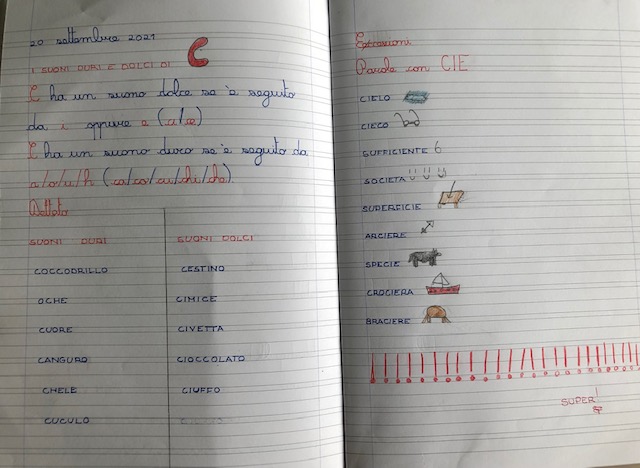 20 settembre 2021
I SUONI DURI E DOLCI DI C
C ha un suono dolce se è seguito
da i oppure e (ci/ce)
C ha un suono duro se è seguito da
a/o/u/h (ca/co/cu/chi/che).
Dettato
SUONI DURI SUONI DOLCI
COCCODRILLO CESTINO
OCHE CIMICE
CUORE CIVETTA
CANGURO CIOCCOLATO
CHELE CIUFFO
CUCULO
Eccezioni
Parole con CIE
CIELO
CIECO
SUFFICIENTE 6
SOCIETÀ
SUPERFICIE
ARCIERE
SPECIE
CROCIERA
BRACIERE
SUPER!